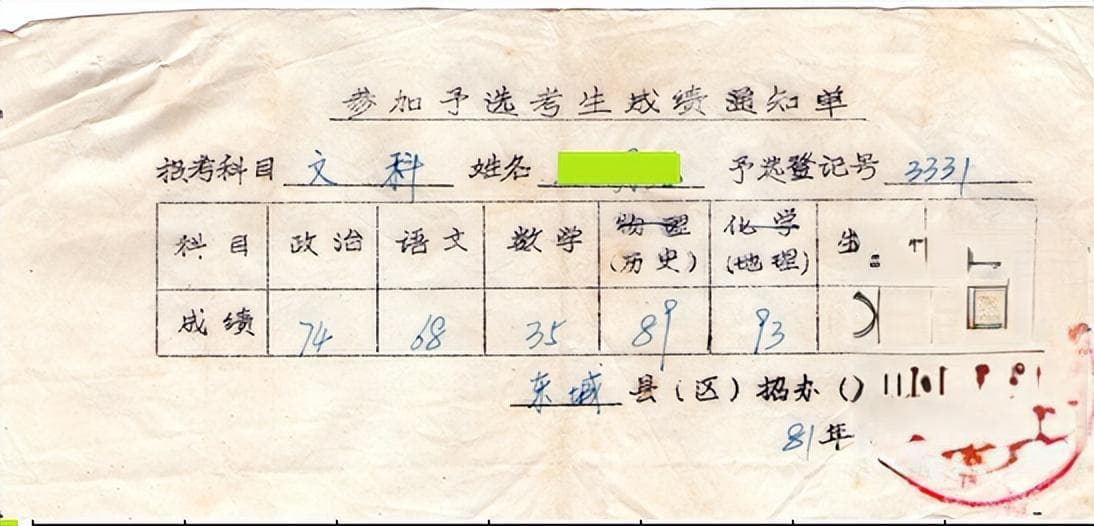 参加予选考生成绩通知单
报考科目 文 科 姓名 予选登记号 3331
科目 政治 语文 数学 物理 (历史) 化学 (地理) 生
成绩 74 68 35 89 93
东城县(区)招办()
81年